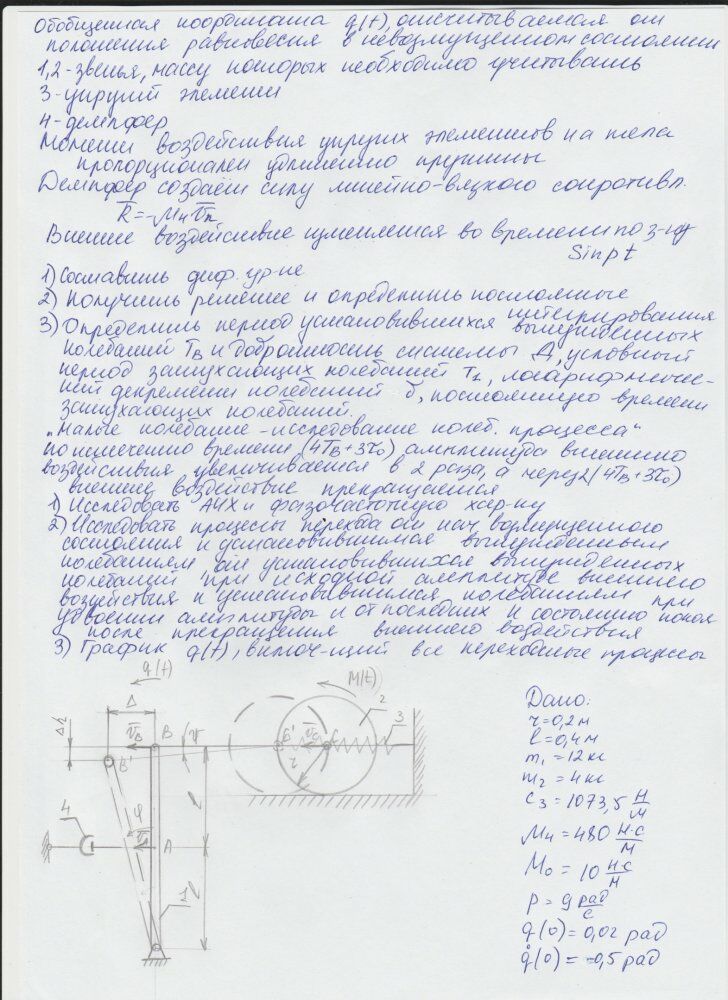 Обобщенная координата q(t), отсчитываемая от
положения равновесия в невозмущенном состоянии
1,2-звенья, массу которых необходимо учитывать
3-упругий элемент
4-демпфер
Момент воздействия упругих элементов на тела
пропорционален удлинению пружины
Демпфер создает силу линейно-вязкого сопротивл.
R̅=-μ₄v̅ₙ
Внешнее воздействие изменяется во времени по з-ну
Sinpt
1) Составить диф. ур-ие
2) Получить решение и определить постоянные
интегрирования
3) Определить период установившихся вынужденных
колебаний Tв и добротность системы Д, условный
период затухающих колебаний T₁, логарифмичес-
кий декремент колебаний δ, постоянную времени
затухающих колебаний.
"Малые колебание - исследование колеб. процесса"
по истечению времени (4Tв+3τ₀) амплитуда внешнего
воздействия увеличивается в 2 раза, а через 2(4Tв+3τ₀)
внешнее воздействие прекращается
1) Исследовать АЧХ и фазочастотную хар-ку
2) Исследовать процессы перехода от нач. возмущенного
состояния к установившимся вынужденным
колебаниям от установившихся вынужденных
колебаний при исходной амплитуде внешнего
воздействия к установившимся колебаниям при
удвоении амплитуды и от последних к состоянию покоя
после прекращения внешнего воздействия
3) График q(t), включ-щий все переходные процессы
q(t)
Δ
M(t)
2
3
Δh
v̅B
B
B'
C'
v̅C
C
r
4
φ
A
l
l
1
Дано:
r=0,2 м
l=0,4 м
m₁=12 кг
m₂=4 кг
c₃=1073,5 Н/м
μ₄=480 Н·с/м
M₀=10 Н·с/м
p=9 рад/с
q(0)=0,02 рад
q̇(0)=-0,5 рад